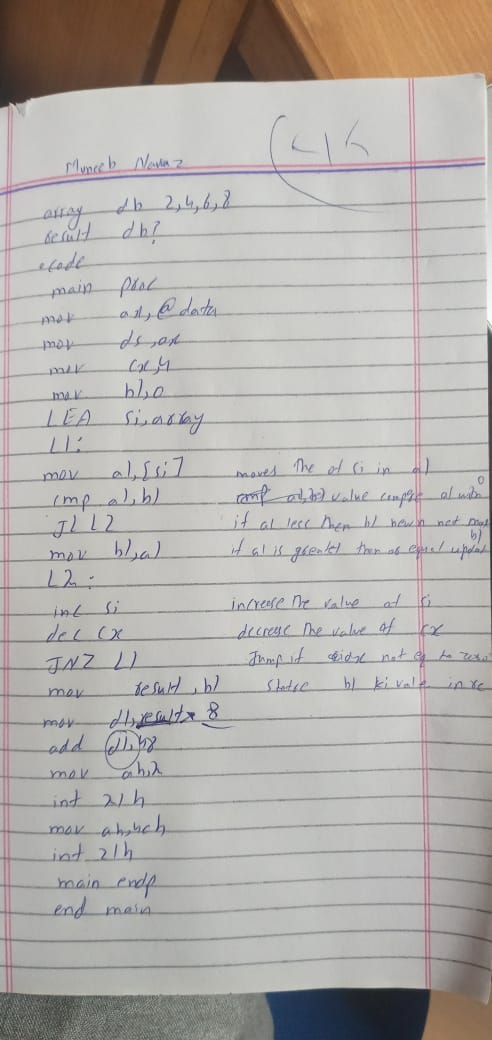 Muneeb Nawaz
array db 2,4,6,8
result db?
.code
main proc
mov ax,@data
mov ds,ax
mov cx,4
mov bl,0
LEA si,array
L1:
mov al,[si] moves the of si in al
cmp al,bl value compare al with 0
JL L2 if al less then bl new
mov bl,al if al is greater than or equal update bl
L2:
inc si increase the value of si
dec cx decrease the value of cx
JNZ L1 Jump if not eq to zero
mov result,bl bl ki vale in re
mov dl,result 8
add dl,48
mov ah,2
int 21h
mov ah,4ch
int 21h
main endp
end main